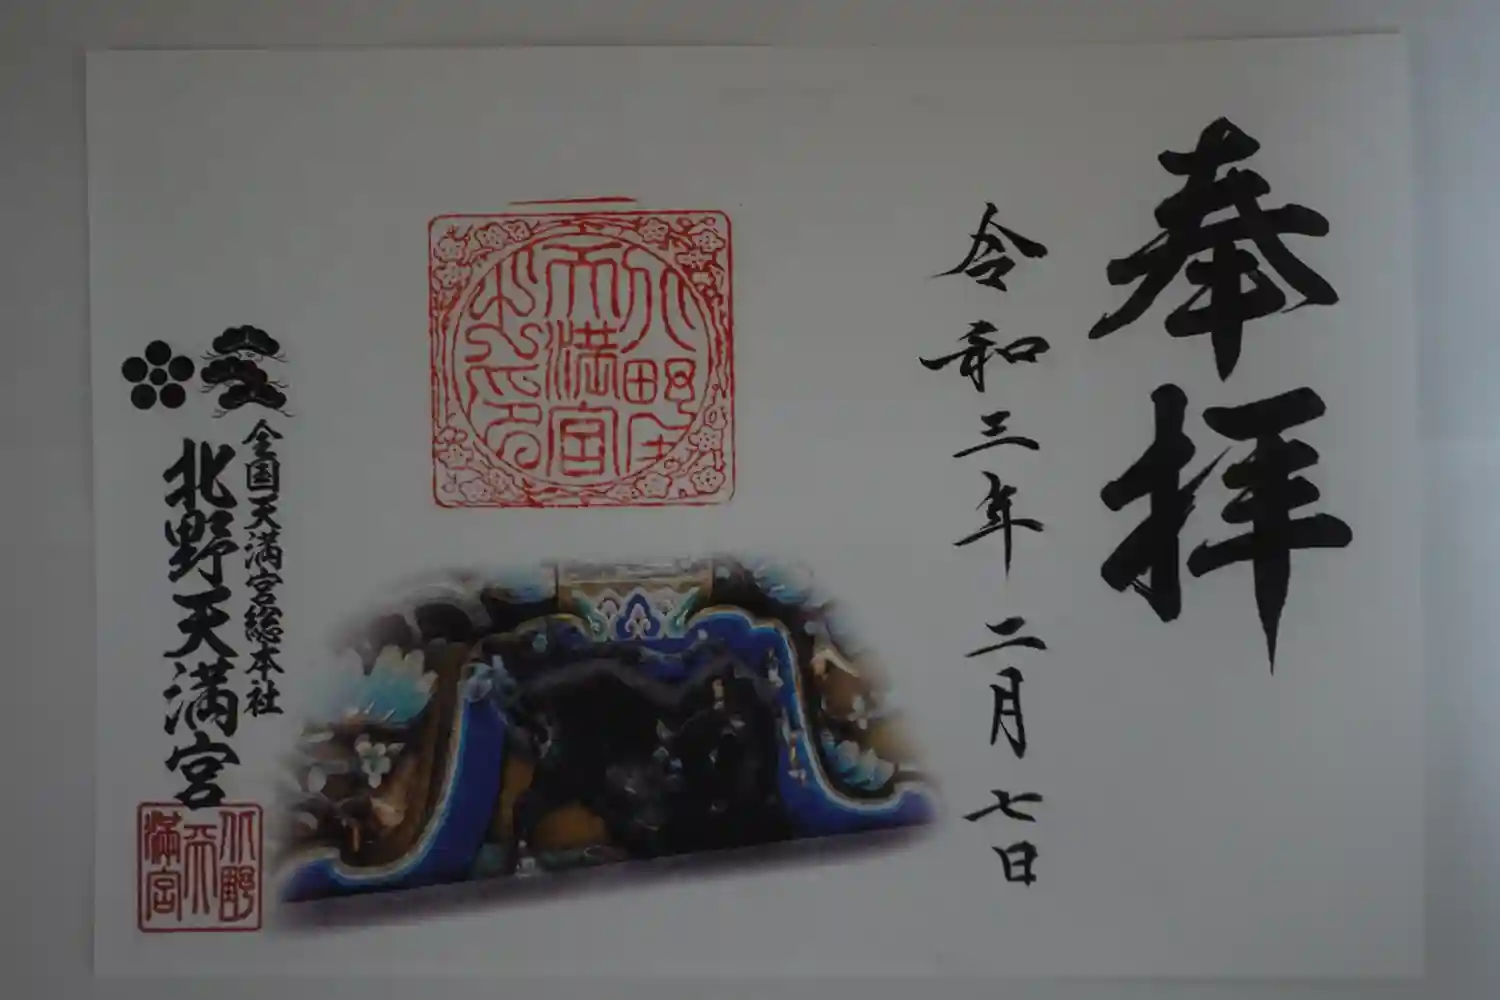 奉拝
令和三年二月七日
北野天満宮
全国天満宮総本社
北野天満宮
北野天満宮